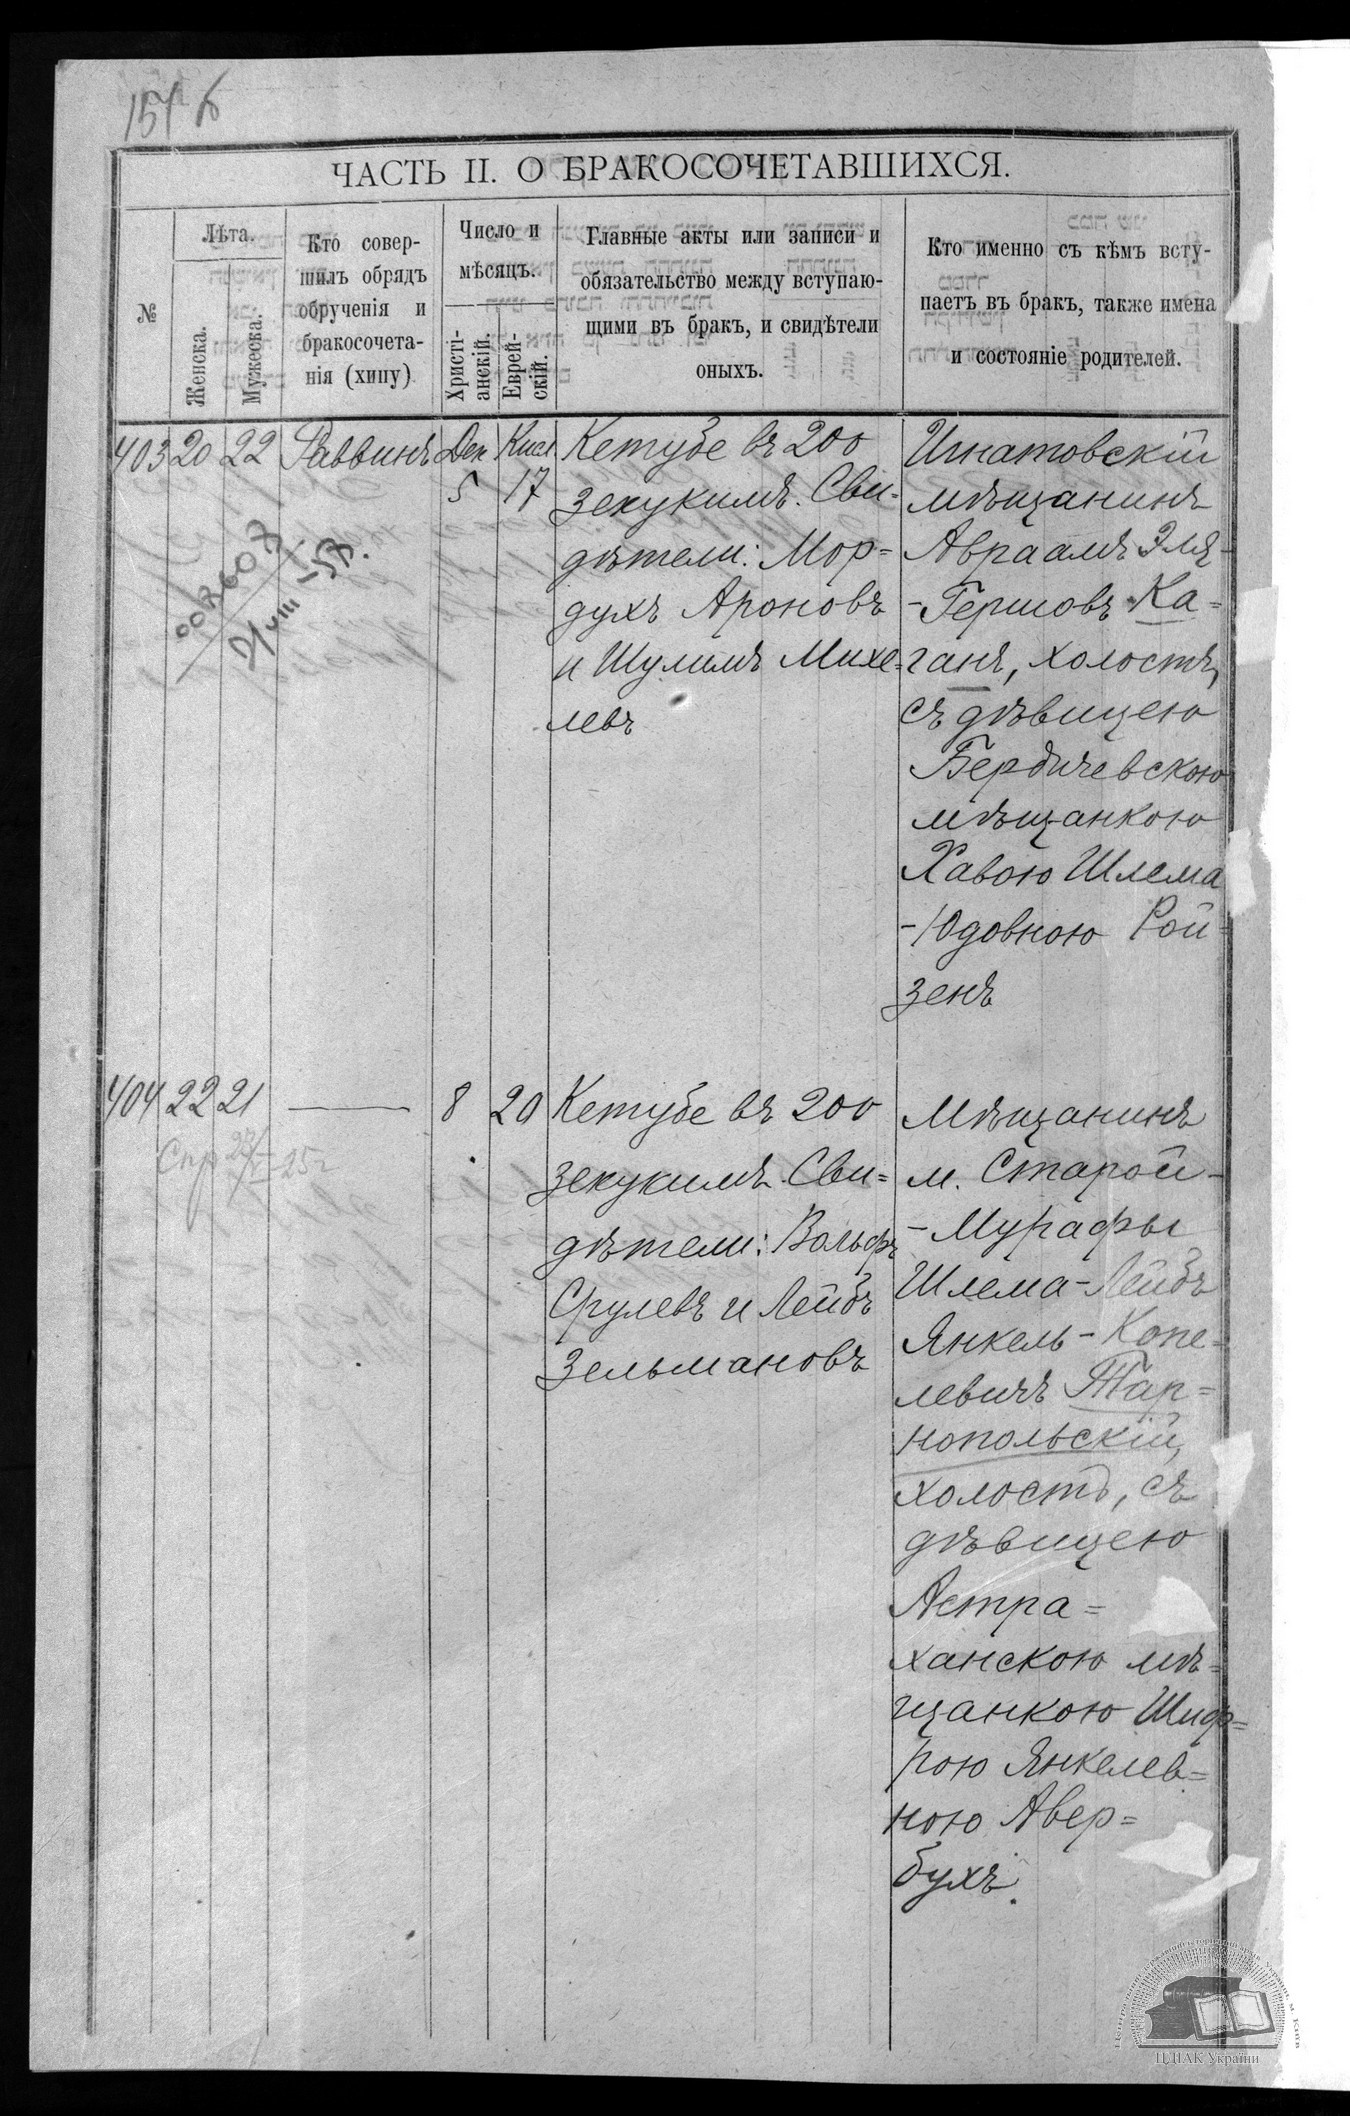 ЧАСТЬ II. О БРАКОСОЧЕТАВШИХСЯ.
№
Лѣта.
Женска.
Мужеска.
Кто совер-
шилъ обрядъ
обрученія и
бракосочета-
нія (хипу)
Число и
мѣсяцъ.
Христі-
анскій.
Еврей-
скій.
Главные акты или записи и
обязательство между вступаю-
щими въ бракъ, и свидѣтели
оныхъ.
Кто именно съ кѣмъ всту-
паетъ въ бракъ, также имена
и состояніе родителей.
403 20 22 Раввинъ
Дек
5
Кисл
17
Кетубе въ 200
зекукимъ. Сви=
дѣтели: Мор=
духъ Ароновъ
и Шулимъ Михе=
левъ
Игнатовскій
мѣщанинъ
Авраамъ Эля-
-Гершовъ Ка=
ганъ, холостъ,
съ дѣвицею
Бердичевскою
мѣщанкою
Хавою Шлема
-Юдовною Рой=
зенъ
404 22 21 —
8 20
Спр 25г
Кетубе въ 200
зекукимъ. Сви=
дѣтели: Вольфъ
Срулевъ и Лейбъ
Зельмановъ
Мѣщанинъ
м. Старой-
-Мурафы
Шлема-Лейбъ
Янкель-Копе=
левичъ Тар=
нопольскій,
холостъ, съ
дѣвицею
Астра=
ханскою мѣ=
щанкою Шиф=
рою Янкелев=
ною Авер=
бухъ.
ЦДІАК України